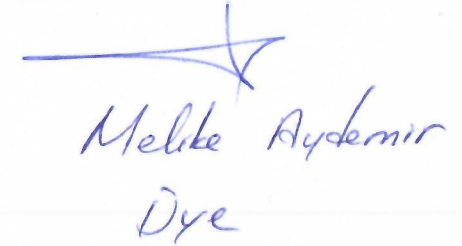 Melike Aydemir
Üye